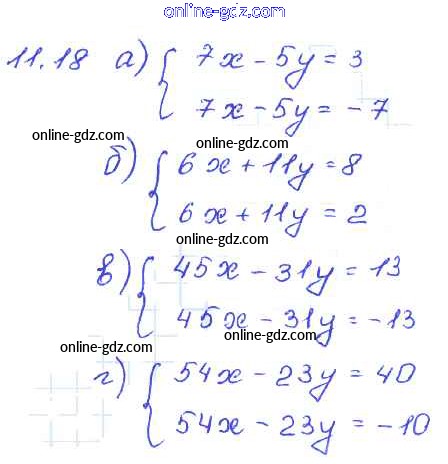 online-gdz.com
11.18 а) { 7x - 5y = 3
7x - 5y = -7
online-gdz.com online-gdz.com
б) { 6x + 11y = 8
6x + 11y = 2
online-gdz.com
в) { 45x - 31y = 13
45x - 31y = -13
online-gdz.com online-gdz.com
г) { 54x - 23y = 40
54x - 23y = -10
online-gdz.com